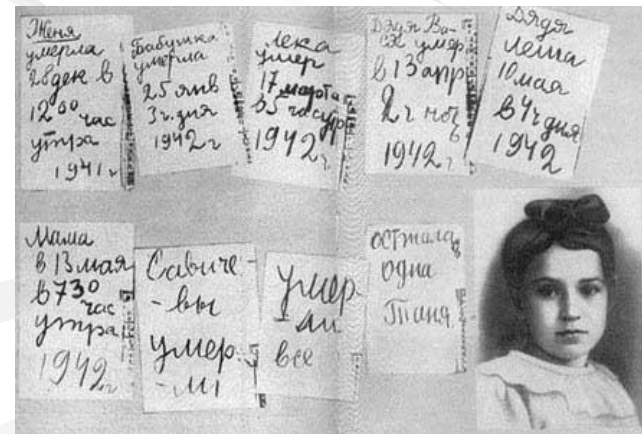 Женя
умерла
28 дек в
12 00 час
утра
1941 г
Бабушка
умерла
25 янв
3 ч. дня
1942 г
Лека
умер
17 марта
в 5 час утр
1942 г
Дядя Ва-
ся умер
в 13 апр
2 ч ноч
1942 г
Дядя
Леша
10 мая
в 4 ч дня
1942
Мама
в 13 мая
в 7 30
час
утра
1942 г
Савиче
-вы
умер
-ли
умер
-ли
все
осталась
одна
Таня